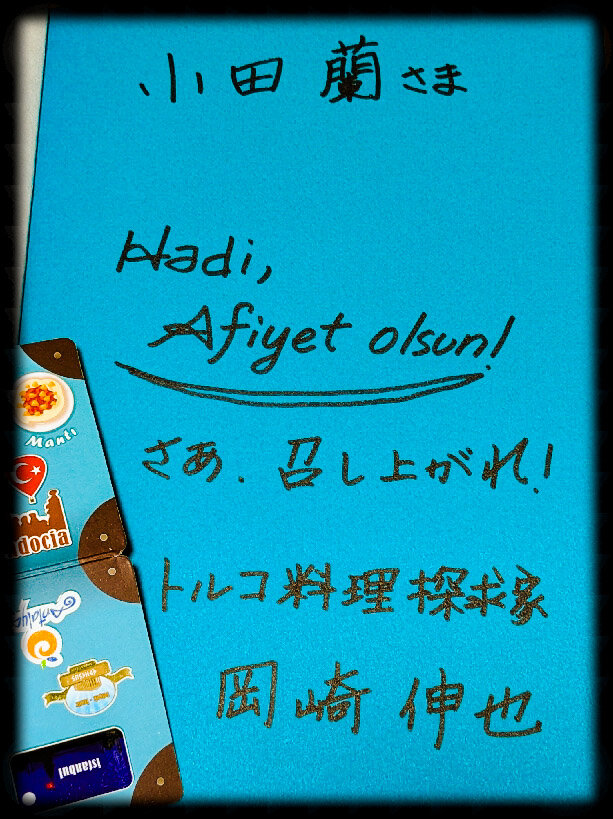 小田 蘭さま
Hadi,
Afiyet olsun!
さあ、召し上がれ!
トルコ料理探求家
岡崎 伸也
Mantı
docia
Antalya
istanbul